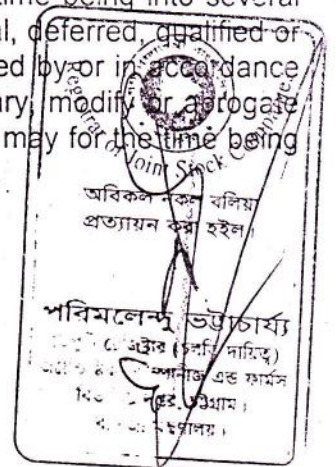 time being into several
l, deferred, qualified or
ed by or in accordance
ary, modify or abrogate
may for the time being
Registrar of Joint Stock Companies
অবিকল নকল বলিয়া
প্রত্যায়ন করা হইল।
পরিমলেন্দু ভট্টাচার্য্য
(চলতি দায়িত্ব)
এন্ড ফার্মস
চট্টগ্রাম।